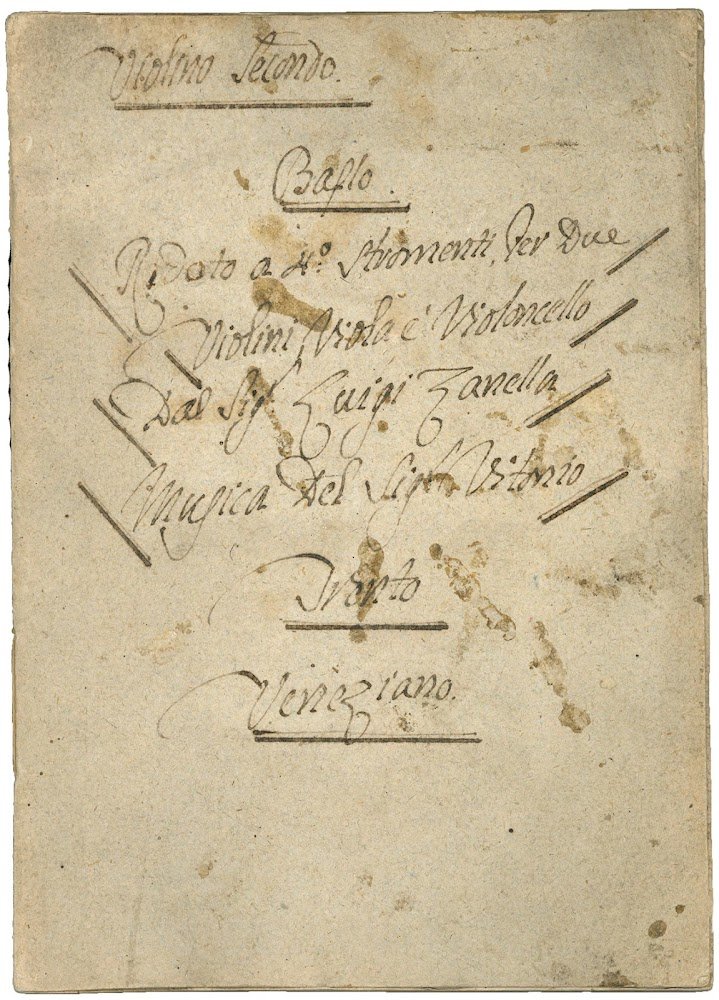 Violino Secondo.
Ballo.
Ridoto a 4º Stromenti, Per Due
Violini, Viola e Violoncello
Dal Sigr Luigi Zanella
Musica Del Sigr Vitorio
Trento
Veneziano.